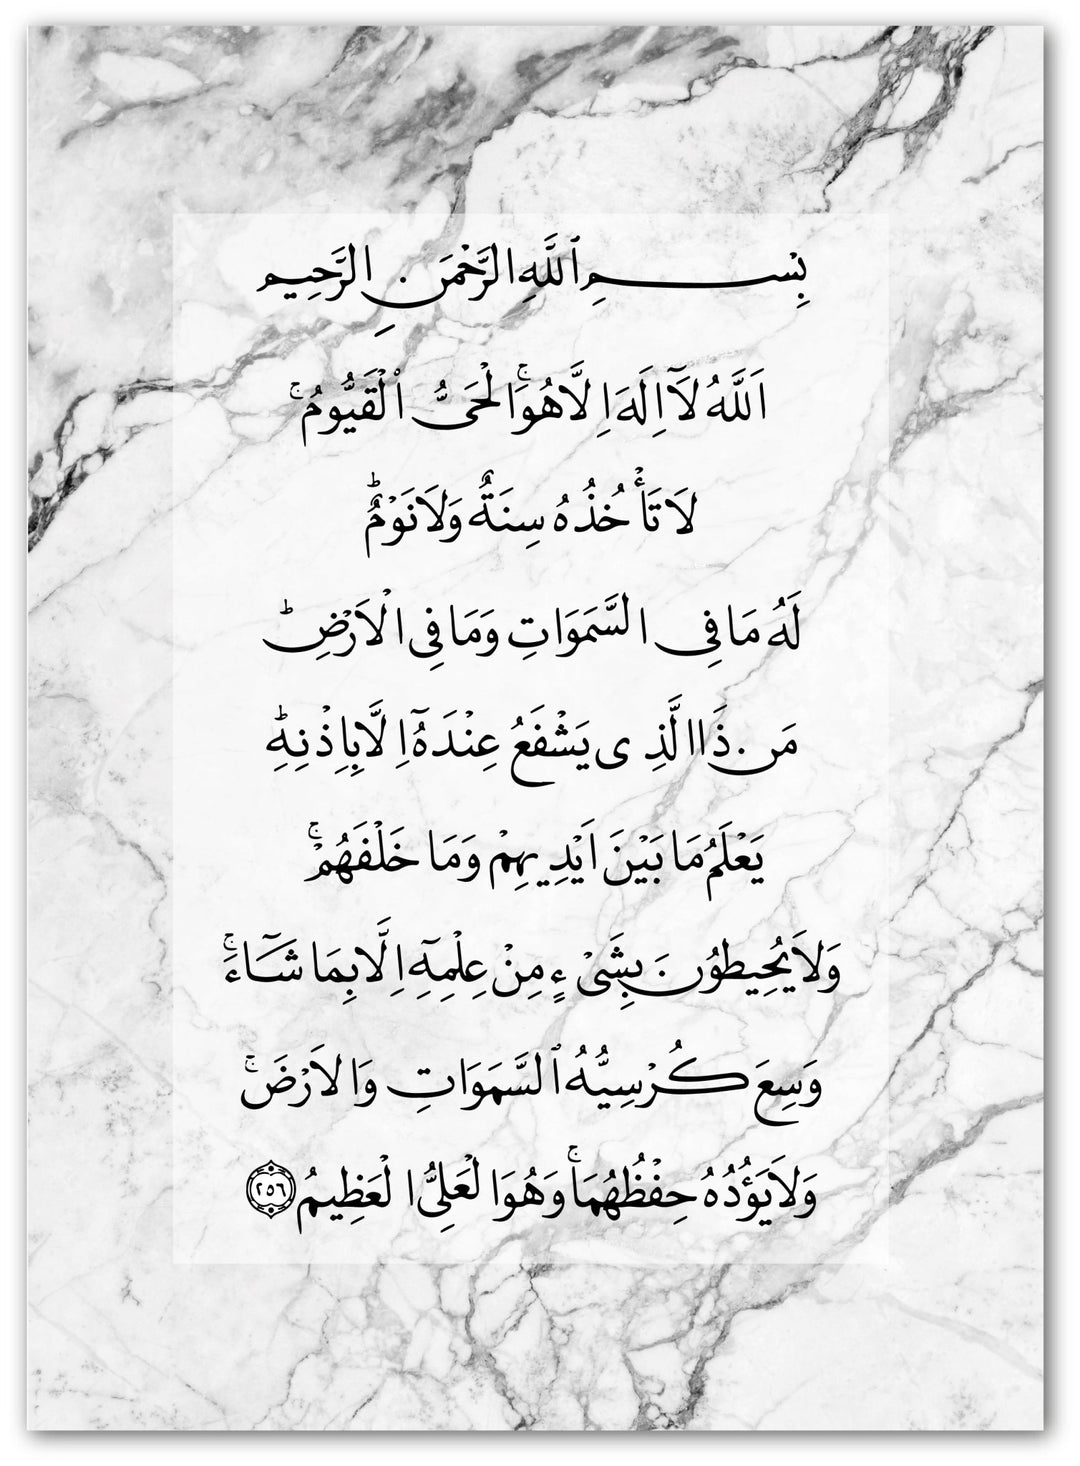 بِسْمِ ٱللَّهِ الرَّحْمَنِ الرَّحِيمِ
اَللَّهُ لَآاِلَهَ اِلَّاهُوَۚالْحَىُّ ٱلْقَيُّومُۚ
لَا تَأْخُذُهُ سِنَةٌ وَلَانَوْمٌؕ
لَهُ مَا فِى السَّمَوَاتِ وَمَا فِى الْاَرْضِؕ
مَن ذَا الَّذِى يَشْفَعُ عِنْدَهُٓ اِلَّابِاِذْنِهِؕ
يَعْلَمُ مَا بَيْنَ اَيْدِيهِمْ وَمَا خَلْفَهُمْۚ
وَلَايُحِيطُونَ بِشَىْءٍ مِنْ عِلْمِهِٓ اِلَّابِمَا شَآءَۚ
وَسِعَ كُرْسِيُّهُ ٱلسَّمَوَاتِ وَالاَرْضَۚ
وَلَايَؤُدُهُ حِفْظُهُمَاۚ وَهُوَالْعَلِىُّ الْعَظِيمُ ٢٥٦